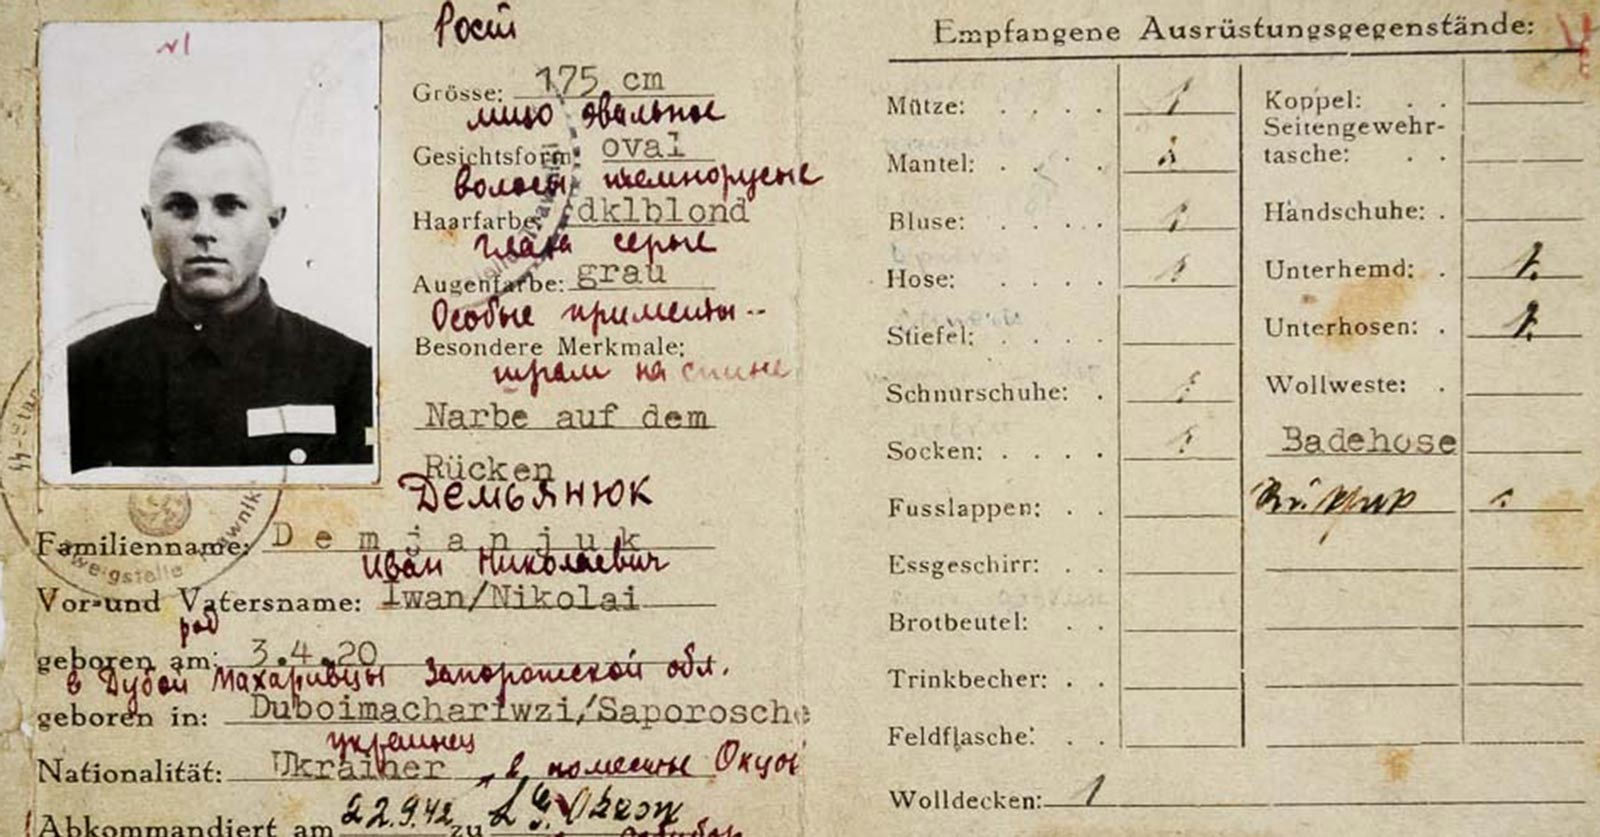 №1
Рост
Grösse: 175 cm
лицо овальное
Gesichtsform: oval
волосы темнорусые
Haarfarbe: dklblond
глаза серые
Augenfarbe: grau
Особые приметы --
Besondere Merkmale:
шрам на спине
Narbe auf dem
Rücken
ДЕМЬЯНЮК
Familienname: Demjanjuk
Иван Николаевич
Vor-und Vatersname: Iwan/Nikolai
род
geboren am: 3.4.20
в Дубой Махаривцы Запорожской обл.
geboren in: Duboimachariwzi/Saporosche
украинец
Nationalität: Ukrainer
в поместье Окцов
Abkommandiert am 22.9.42 zu L.G. Okzow
Empfangene Ausrüstungsgegenstände:
Mütze: . . . . 1
Mantel: . . . .
Bluse: . . . . 1
Hose: . . . . 1
Stiefel: . . . .
Schnürschuhe: . 1
Socken: . . . . 1
Fusslappen: . .
Essgeschirr: . .
Brotbeutel: . .
Trinkbecher: . .
Feldflasche: . .
Wolldecken: 1
Koppel: . .
Seitengewehr-
tasche: . .
Handschuhe: .
Unterhemd: . 1.
Unterhosen: . 1.
Wollweste: .
Badehose